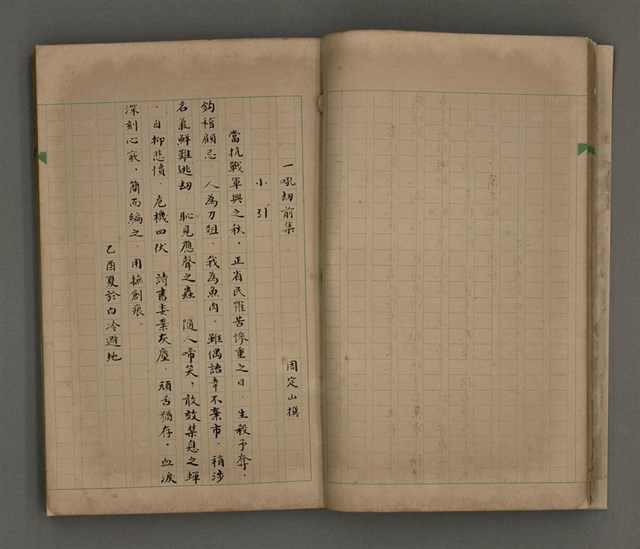 一吼劫前集
周定山撰
小引
當抗戰軍興之秋，正省民罹苦慘重之日．生殺予奪．
鈎稽顧忌．人為刀俎．我為魚肉．雖偶語幸不棄市．稍涉
名義鮮難逃劫．恥見應聲之蟲．隨人啼笑，敢效集息之蟬
．自抑悲憤．危機四伏．詩書委棄灰塵．頑舌猶存．血淚
深刻心窾．簡而編之．用撫創痕．
乙酉夏於白冷避地